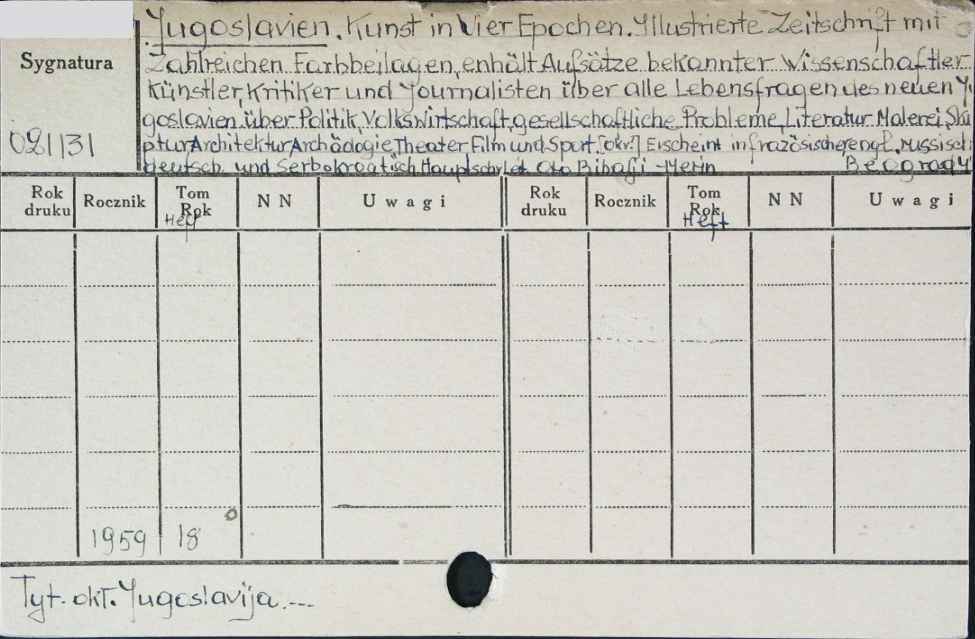 Yugoslavien. Kunst in Vier Epochen. Illustrierte Zeitschrift mit
Zahlreichen Farbbeilagen, enhält Aufsätze bekannter Wissenschaftler
Künstler, Kritiker und Journalisten über alle Lebensfragen des neuen Yu
goslavien über Politik, Volkswirtschaft, gesellschaftliche Probleme, Literatur Malerei, Skul
ptur Architektur Archäologie Theater Film und Sport. [okr.] Erscheint in französischer engl., russisch
deutsch und Serbokroatisch Hauptschrlet Oto Bihalji-Merin Beograd
Sygnatura
081131
Rok druku Rocznik Tom Rok Heft N N Uwagi Rok druku Rocznik Tom Rok Heft N N Uwagi
1959 18
Tyt. okł. Yugoslavija....